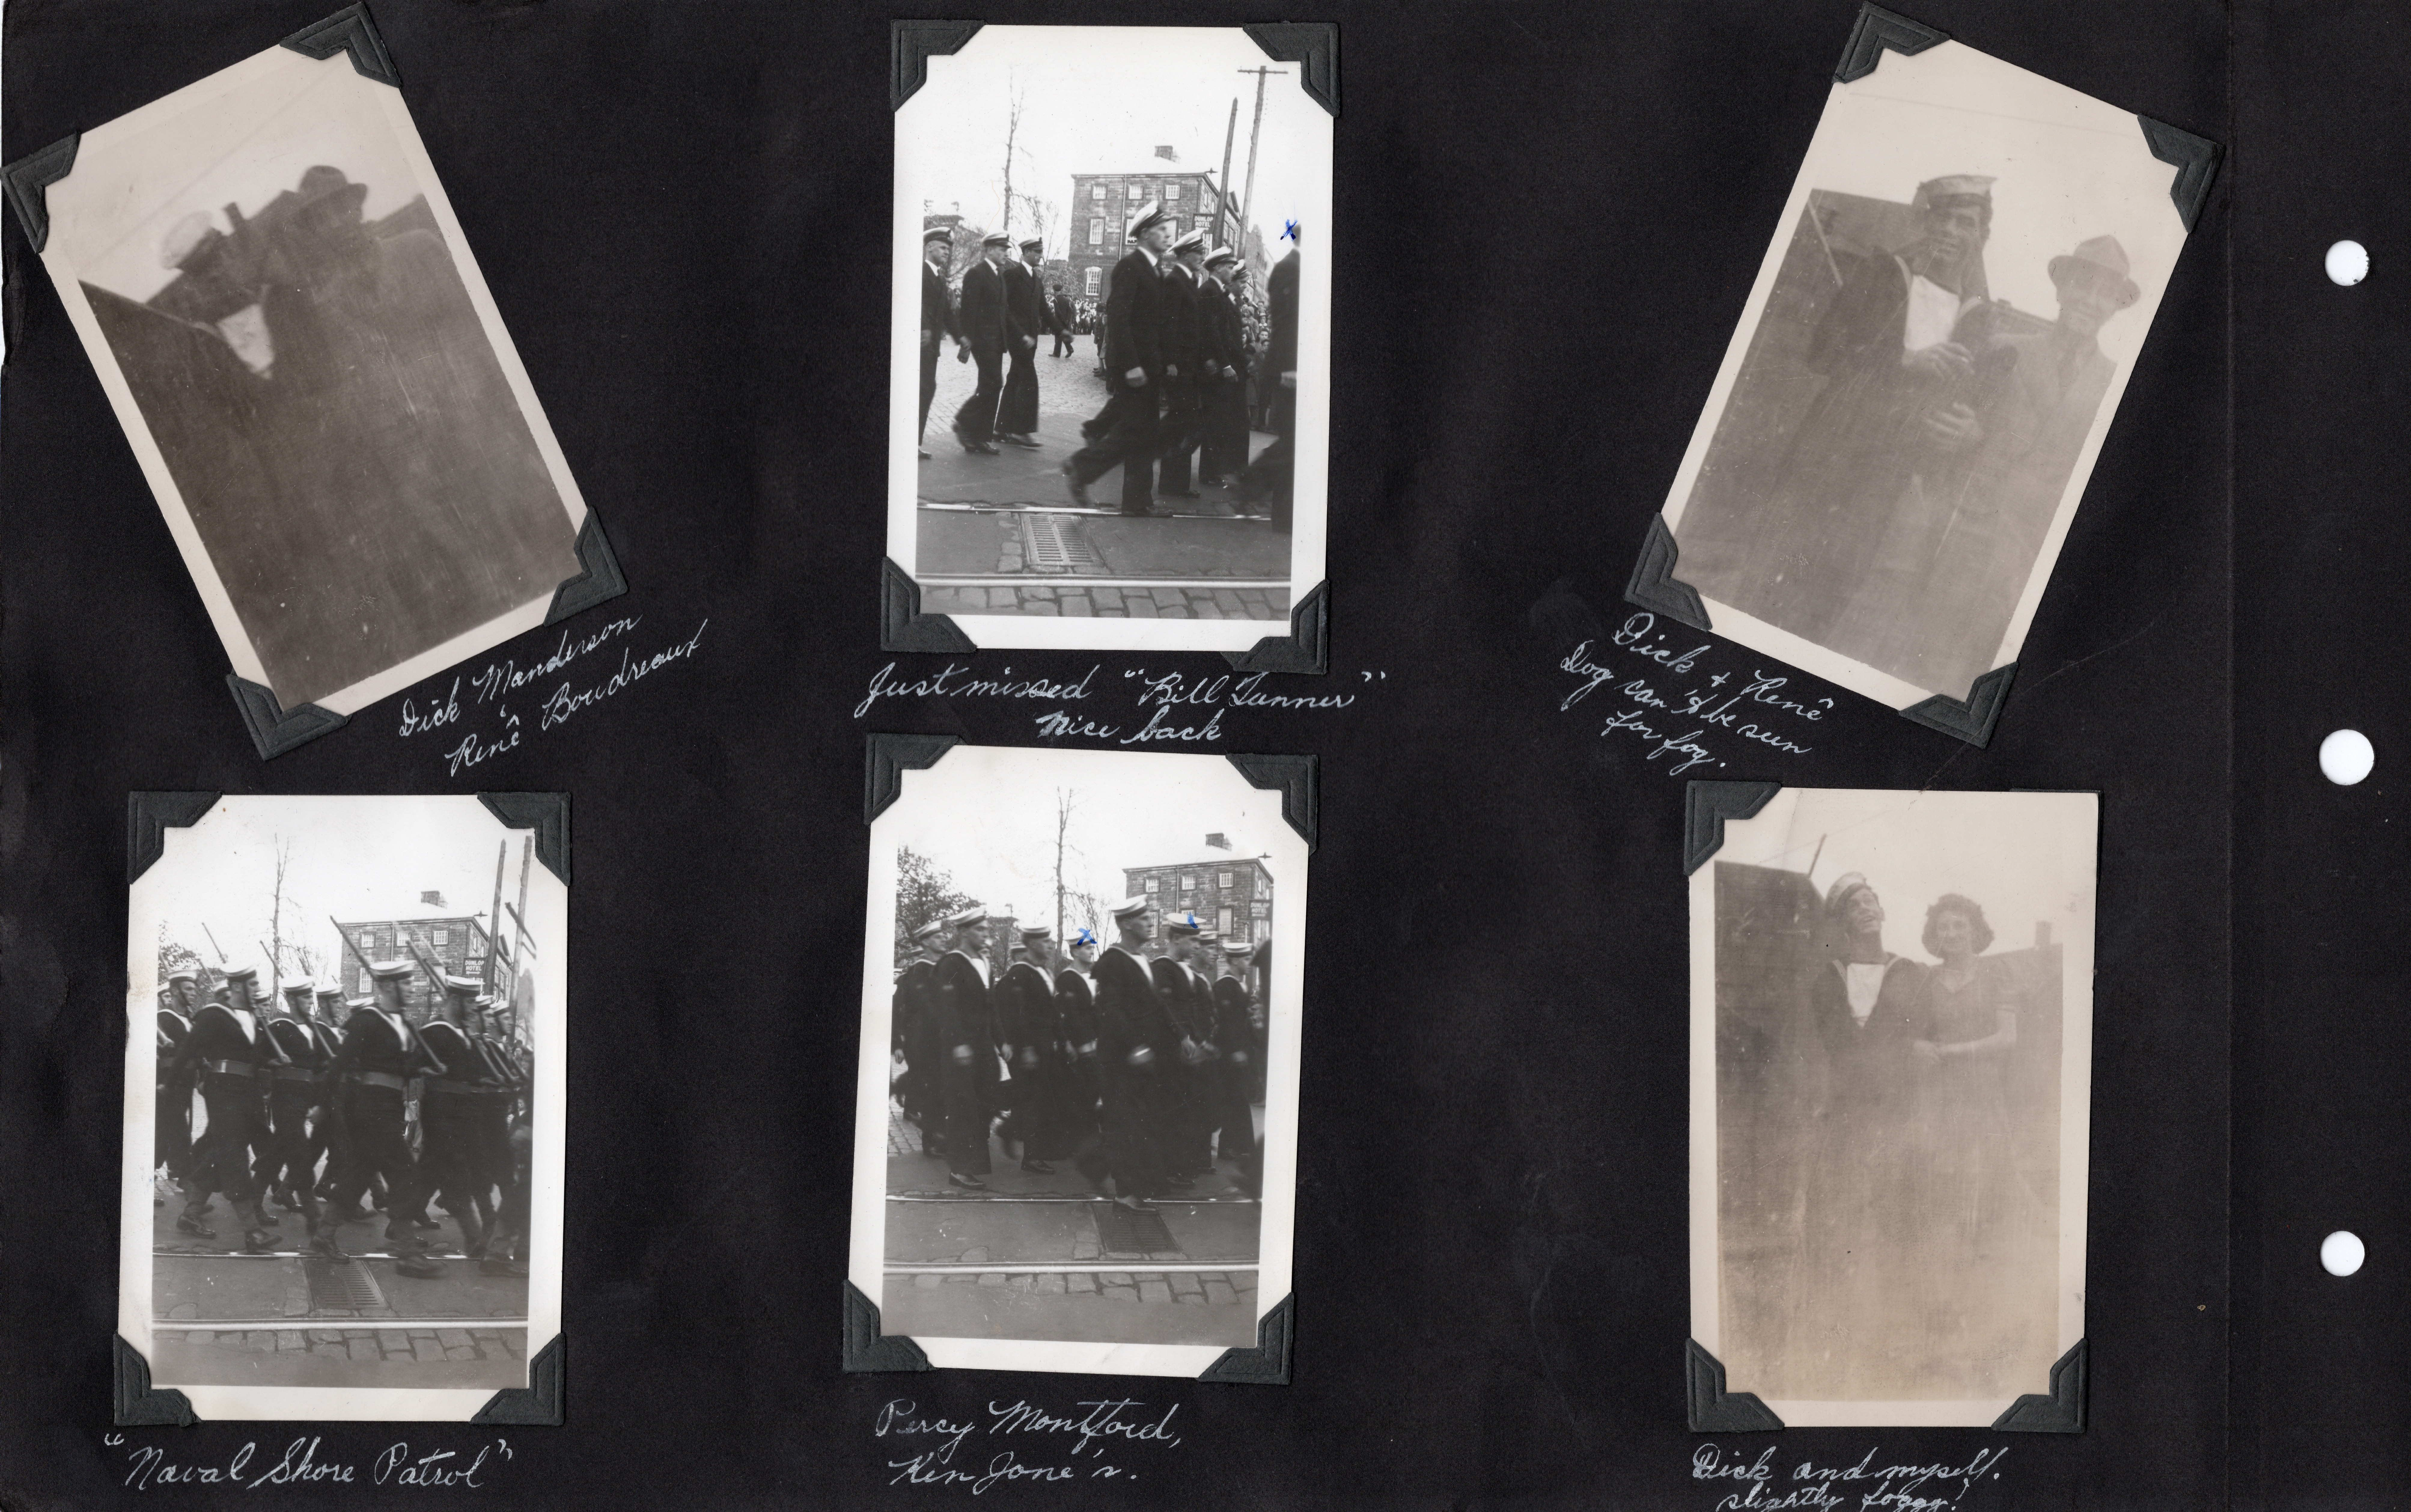 Dick Manderson
&
René Boudreaux
Just missed "Bill Tanner"
Nice back
Dick & René
Dog can't be seen
for fog.
"Naval Shore Patrol"
Percy Montford,
Ken Jone's.
Dick and myself.
slightly foggy!
DUNLOP
HOTEL
X
X